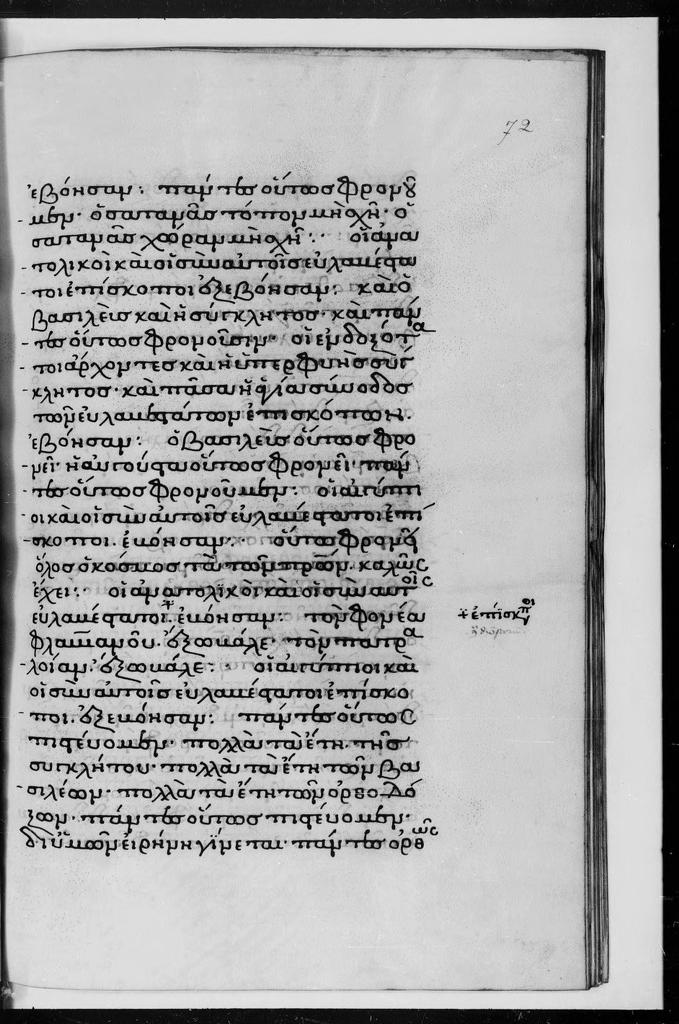 72
ἐβόησαν: πάντες οὕτως φρονοῦ
μεν· ὁ σατανᾶς τόπον μὴ ἔχῃ· ὁ
σατανᾶς χώραν μὴ ἔχῃ: οἱ ἀνα
τολικοὶ καὶ οἱ σὺν αὐτοῖς εὐλαβέστα
τοι ἐπίσκοποι ἐξεβόησαν: καὶ ὁ
βασιλεὺς καὶ ἡ σύγκλητος· καὶ πάν
τες οὕτως φρονοῦσιν· οἱ ἐνδοξότα
τοι ἄρχοντες καὶ ἡ ὑπερφυὴς σύγ
κλητος· καὶ πᾶσα ἡ ἁγία σύνοδος
τῶν εὐλαβεστάτων ἐπισκόπων.
ἐβόησαν: ὁ βασιλεὺς οὕτως φρο
νεῖ· ἡ αὐγούστα οὕτως φρονεῖ· πάν
τες οὕτως φρονοῦμεν: οἱ αἰγύπτι
οι καὶ οἱ σὺν αὐτοῖς εὐλαβέστατοι ἐπί
σκοποι. ἐβόησαν: οὕτω φρονεῖ
ὅλος ὁ κόσμος τὰ τῶν πρῶν. καλῶς
ἔχει: οἱ ἀνατολικοὶ καὶ οἱ σὺν αὐτοῖς
εὐλαβέστατοι. ἐβόησαν: τὸν φονέα
φλαυιανοῦ. ἔξω βάλε· τὸν πατρα
λοίαν. ἔξω βάλε: οἱ αἰγύπτιοι καὶ
οἱ σὺν αὐτοῖς εὐλαβέστατοι ἐπίσκο
ποι. ἐξεβόησαν: πάντες οὕτως
πιστεύομεν· πολλὰ τὰ ἔτη τῆς
συγκλήτου· πολλὰ τὰ ἔτη τῶν βα
σιλέων· πολλὰ τὰ ἔτη τῶν ὀρθοδό
ξων· πάντες οὕτως πιστεύομεν·
δι ὑμῶν εἰρήνη γίνεται· πάντες ὀρθῶς
ἐπίσκοποι